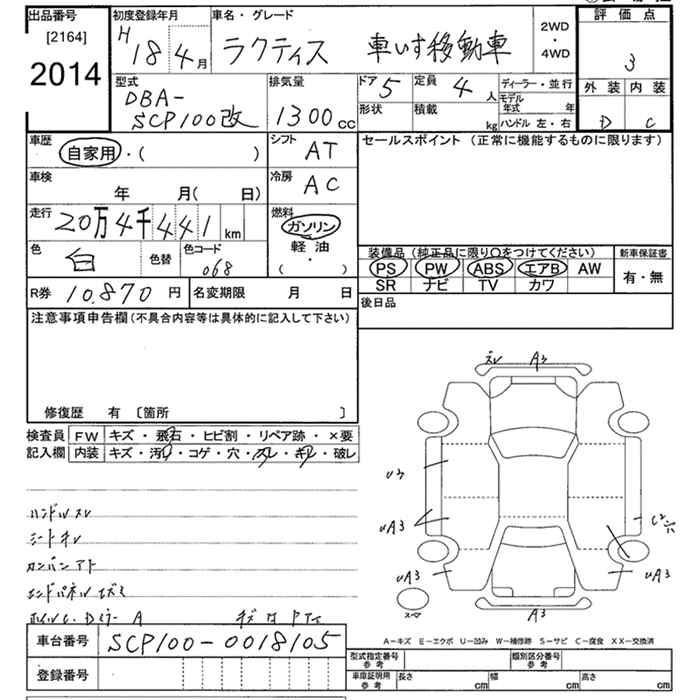 出品番号 初度登録年月 車名・グレード 2WD・4WD 評価点
[2164] H 18年 4月 ラクティス 車いす移動車 3
2014
型式 排気量 ドア 5 定員 4人 ディーラー・並行 外装 内装
DBA- 形状 積載 kg モデル年式 年
SCP100改 1300cc ハンドル 左・右 D C
車歴 シフト セールスポイント (正常に機能するものに限ります)
自家用・( ) AT
車検 冷房
年 月( 日) AC
走行 20万4千441km 燃料
ガソリン
軽油
( ・ )
色 白 色替 色コード 068
装備品 (純正品に限り○をつけてください) 新車保証書
PS PW ABS エアB AW 有・無
SR ナビ TV カワ
R券 10,870円 名変期限 月 日 後日品
注意事項申告欄(不具合内容等は具体的に記入して下さい)
修復歴 有 [箇所 ]
検査員 FW キズ・飛石・ヒビ割・リペア跡・×要
記入欄 内装 キズ・汚・コゲ・穴・スレ・キレ・破レ
スレ A3
U3
UA3 C2
UA3 UA3
A3
ハンドルスレ
シートキレ
カンバンアト
A-キズ E-エクボ U-凹み W-補修跡 S-サビ C-腐食 XX-交換済
車台番号 SCP100-0018105
登録番号
型式指定番号 参考 類別区分番号 参考
車庫証明用 参考 長さ cm 幅 cm 高さ cm